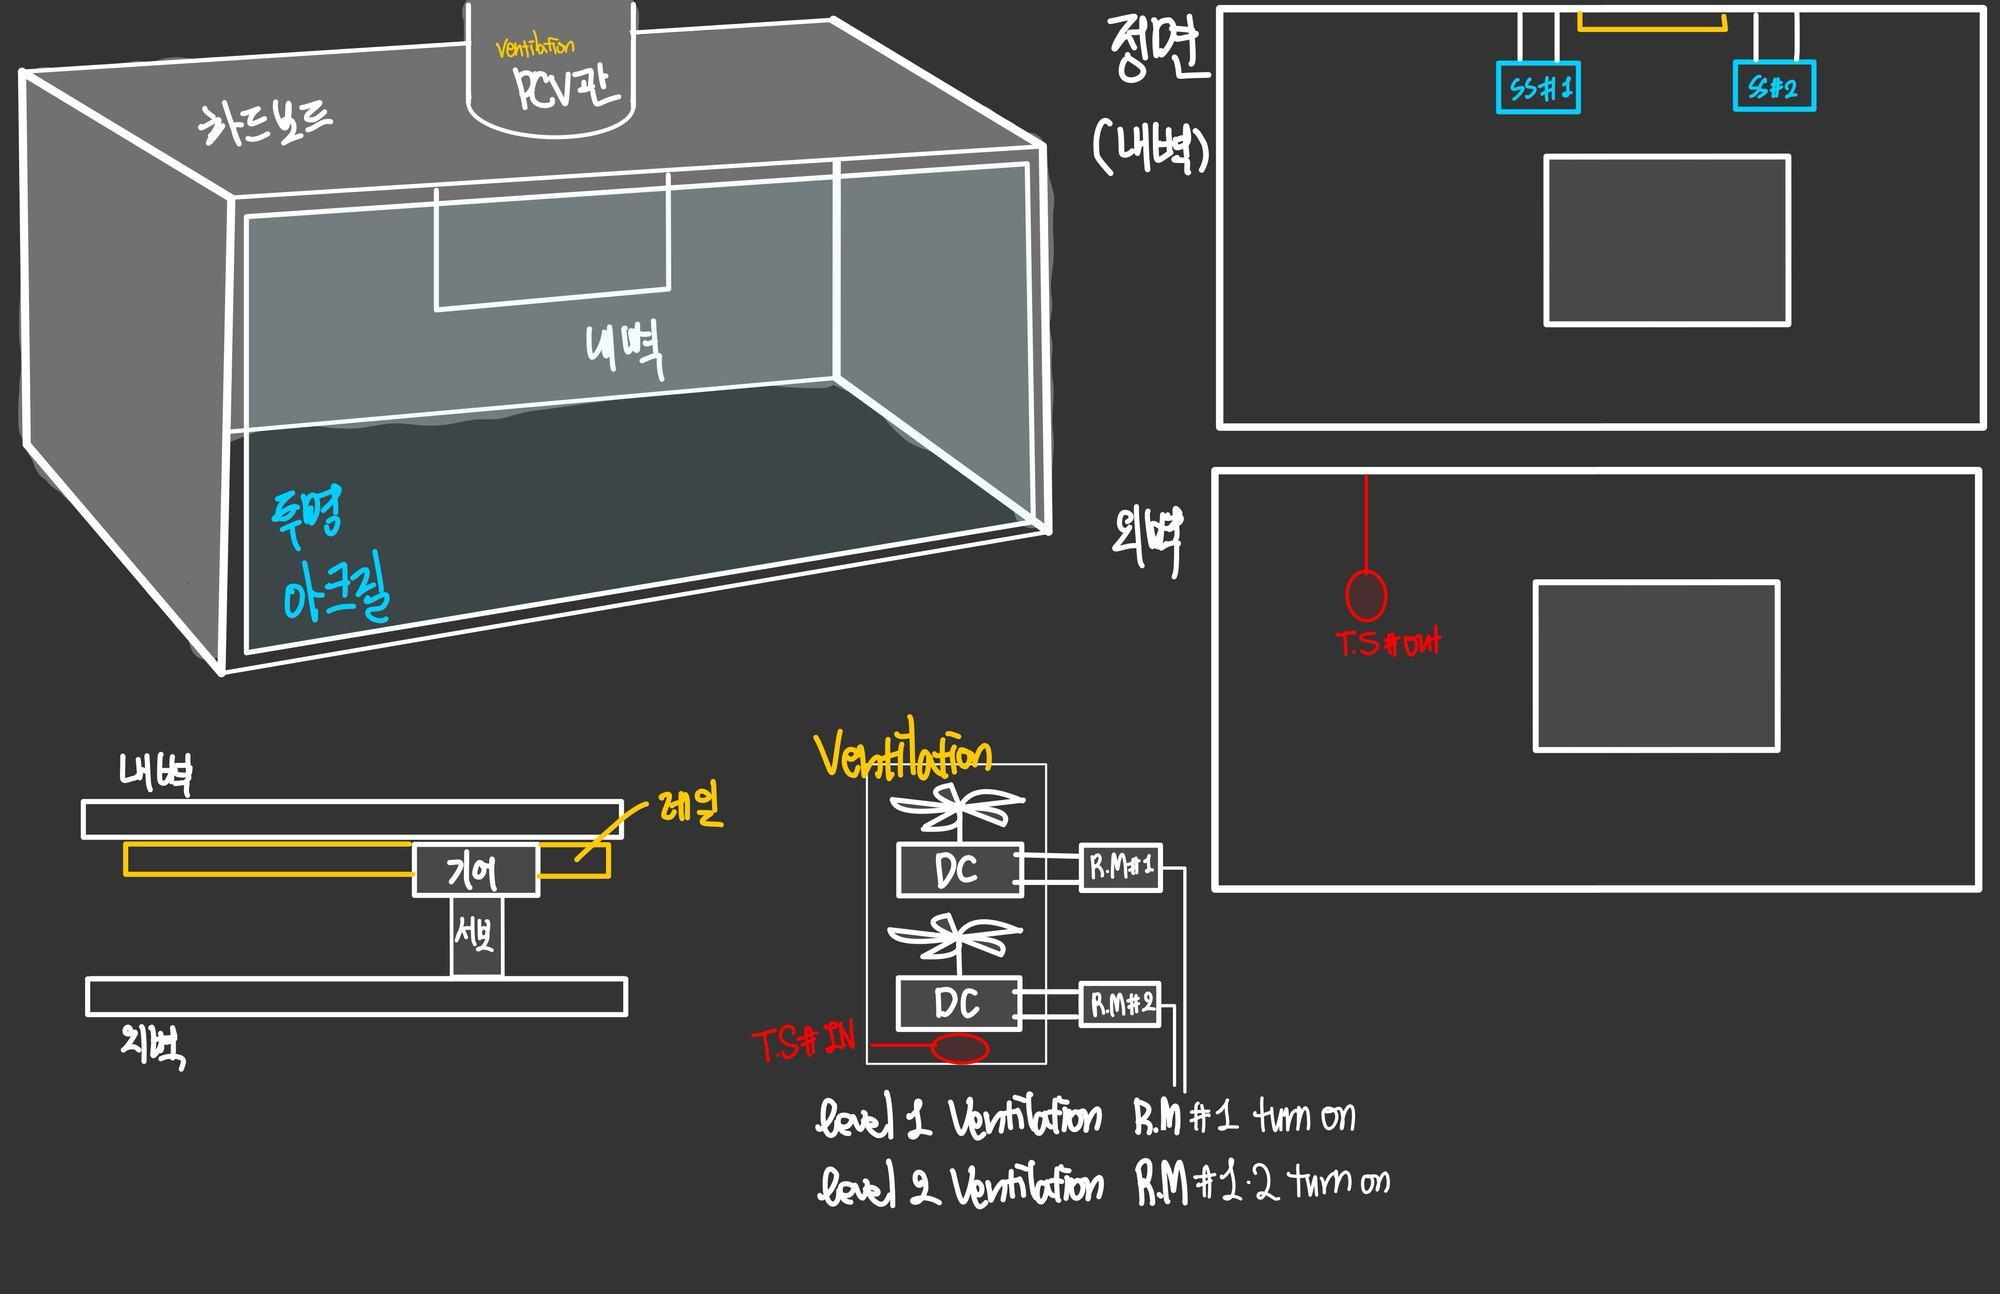 Ventilation
PCV관
카드보드
내벽
투명
아크릴
정면
(내벽)
SS#1
SS#2
외벽
T.S#out
내벽
레일
기어
서보
외벽
Ventilation
DC
R.M#1
DC
R.M#2
T.S#IN
level 1 Ventilation R.M#1 turn on
level 2 Ventilation R.M#1·2 turn on